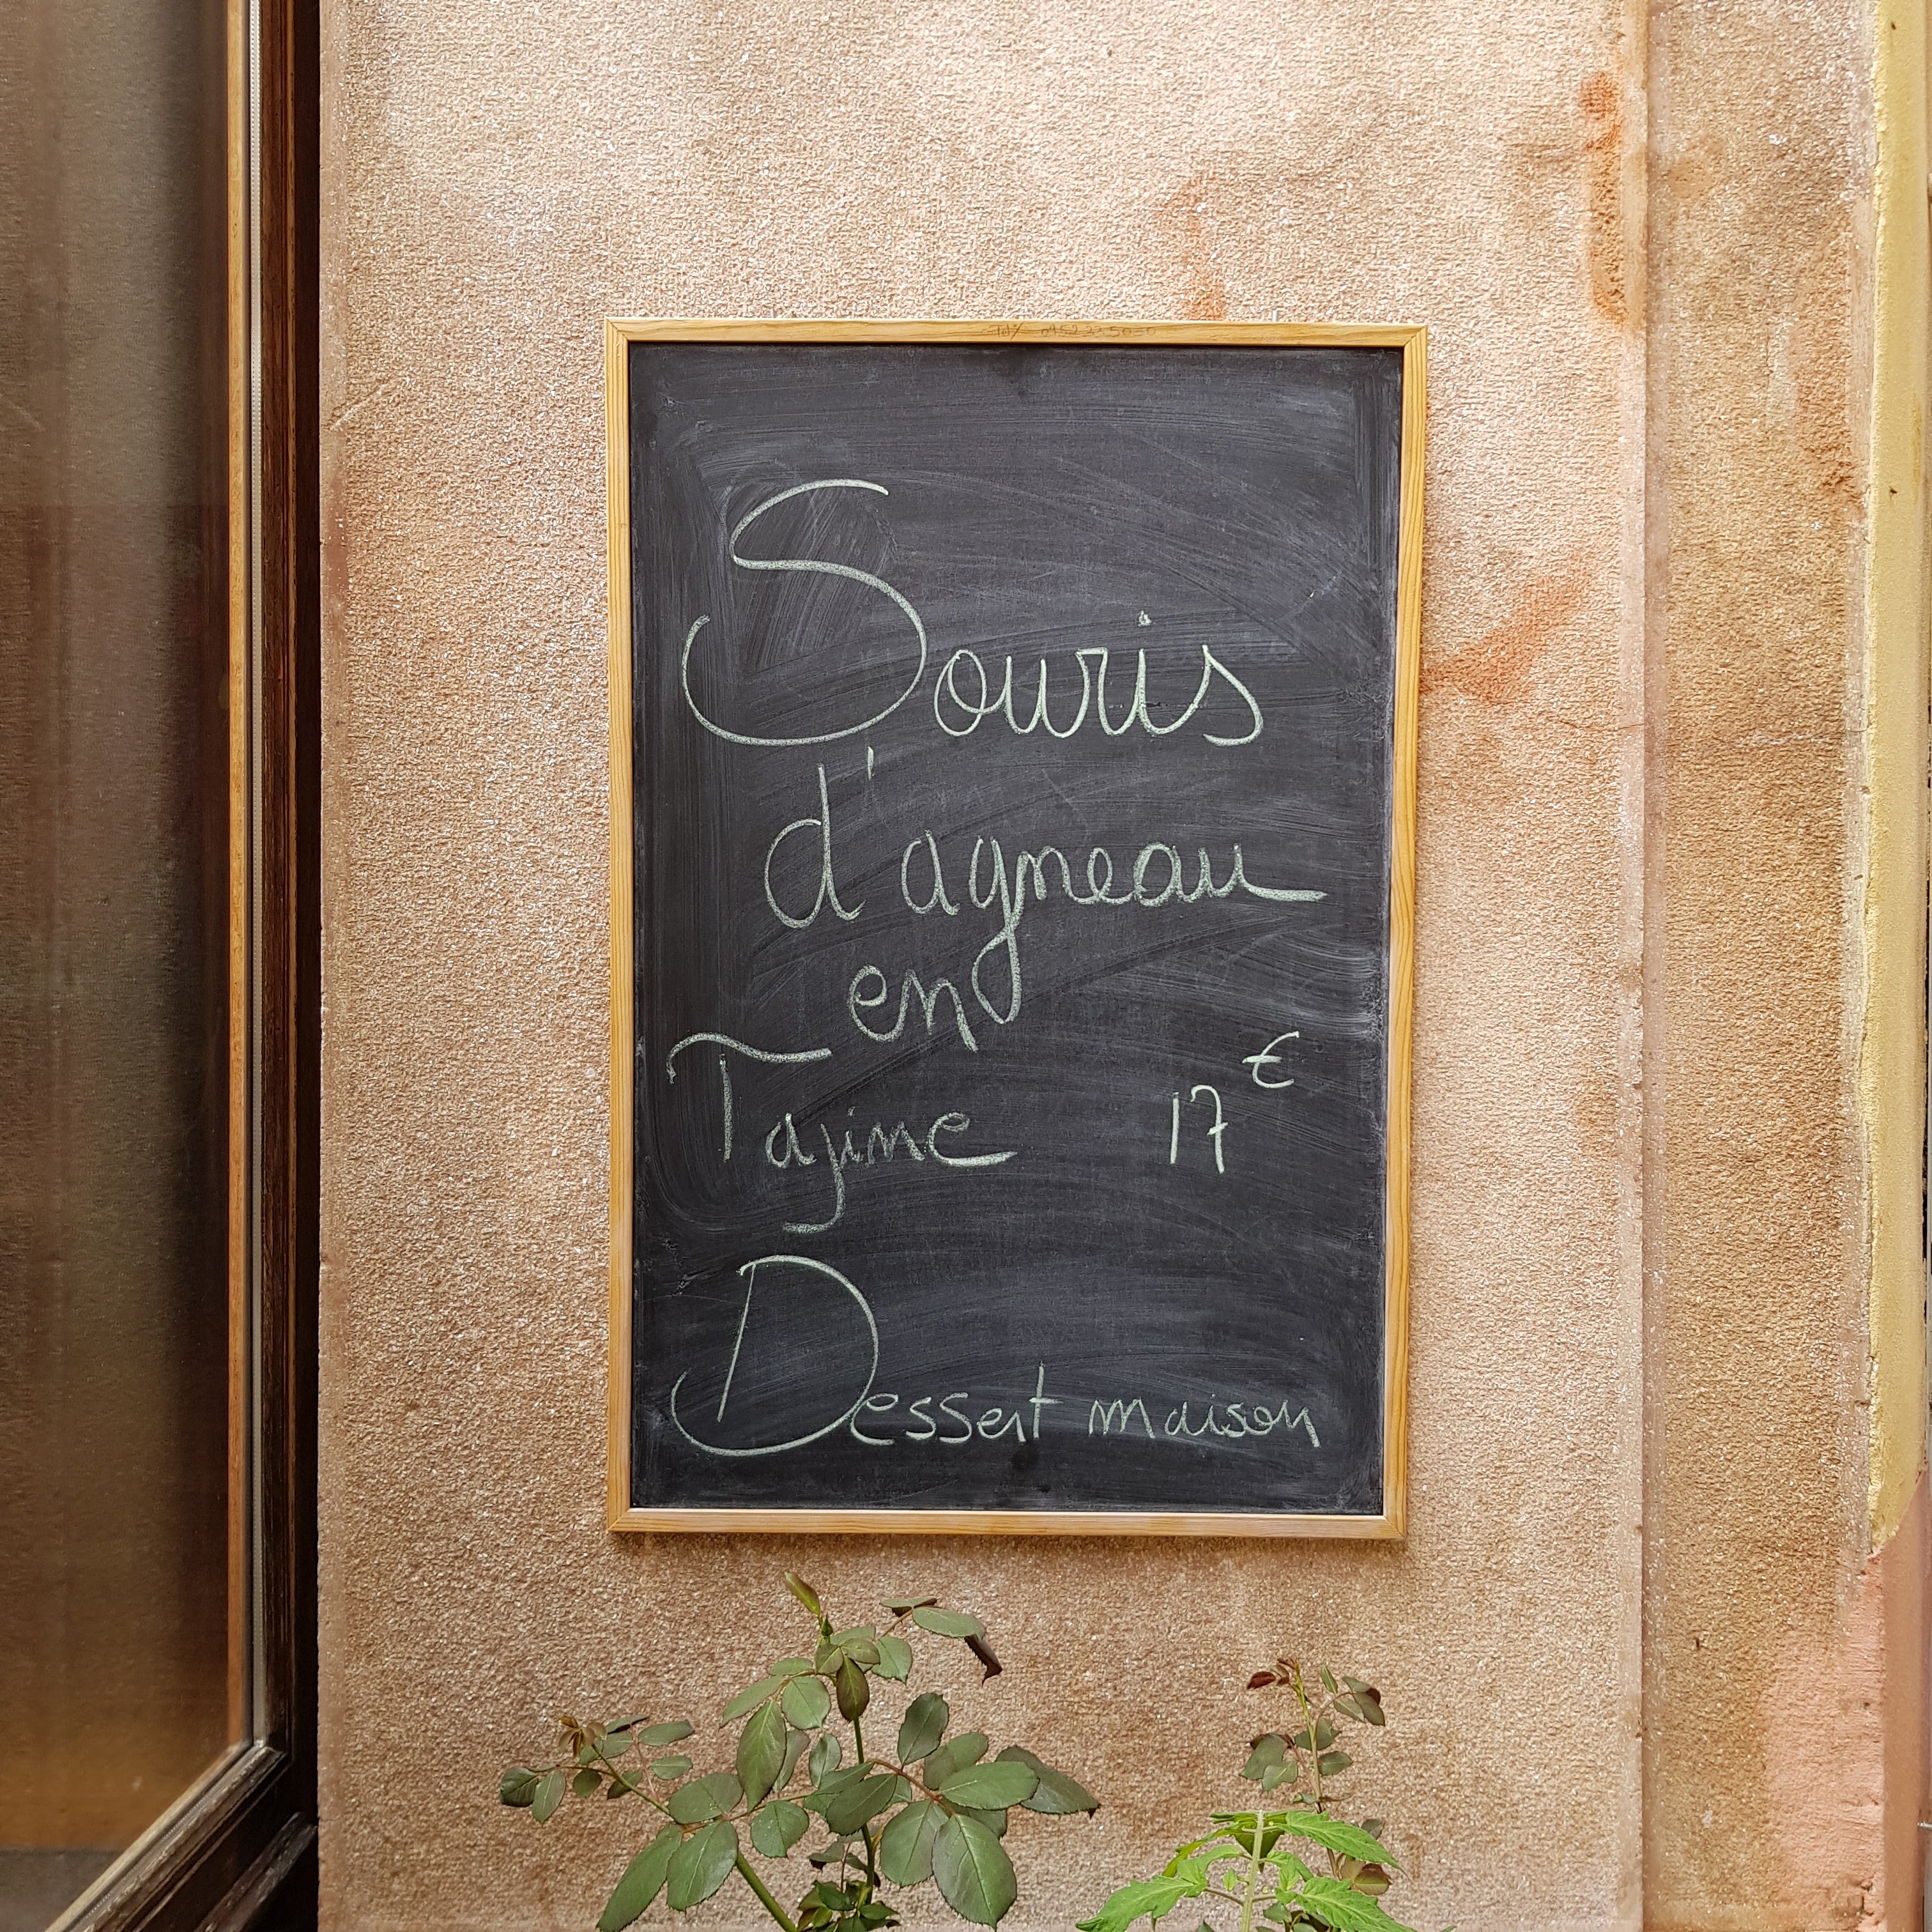 Souris
d'agneau
en
Tajine 17 €
Dessert maison